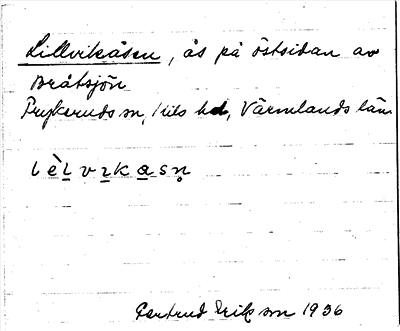 Lillvikåsen, ås på östsidan av
Bråtsjön
Frykeruds sn, Kils hd, Värmlands län
lèlvɪkasn̥
Gertrud Erikson 1936